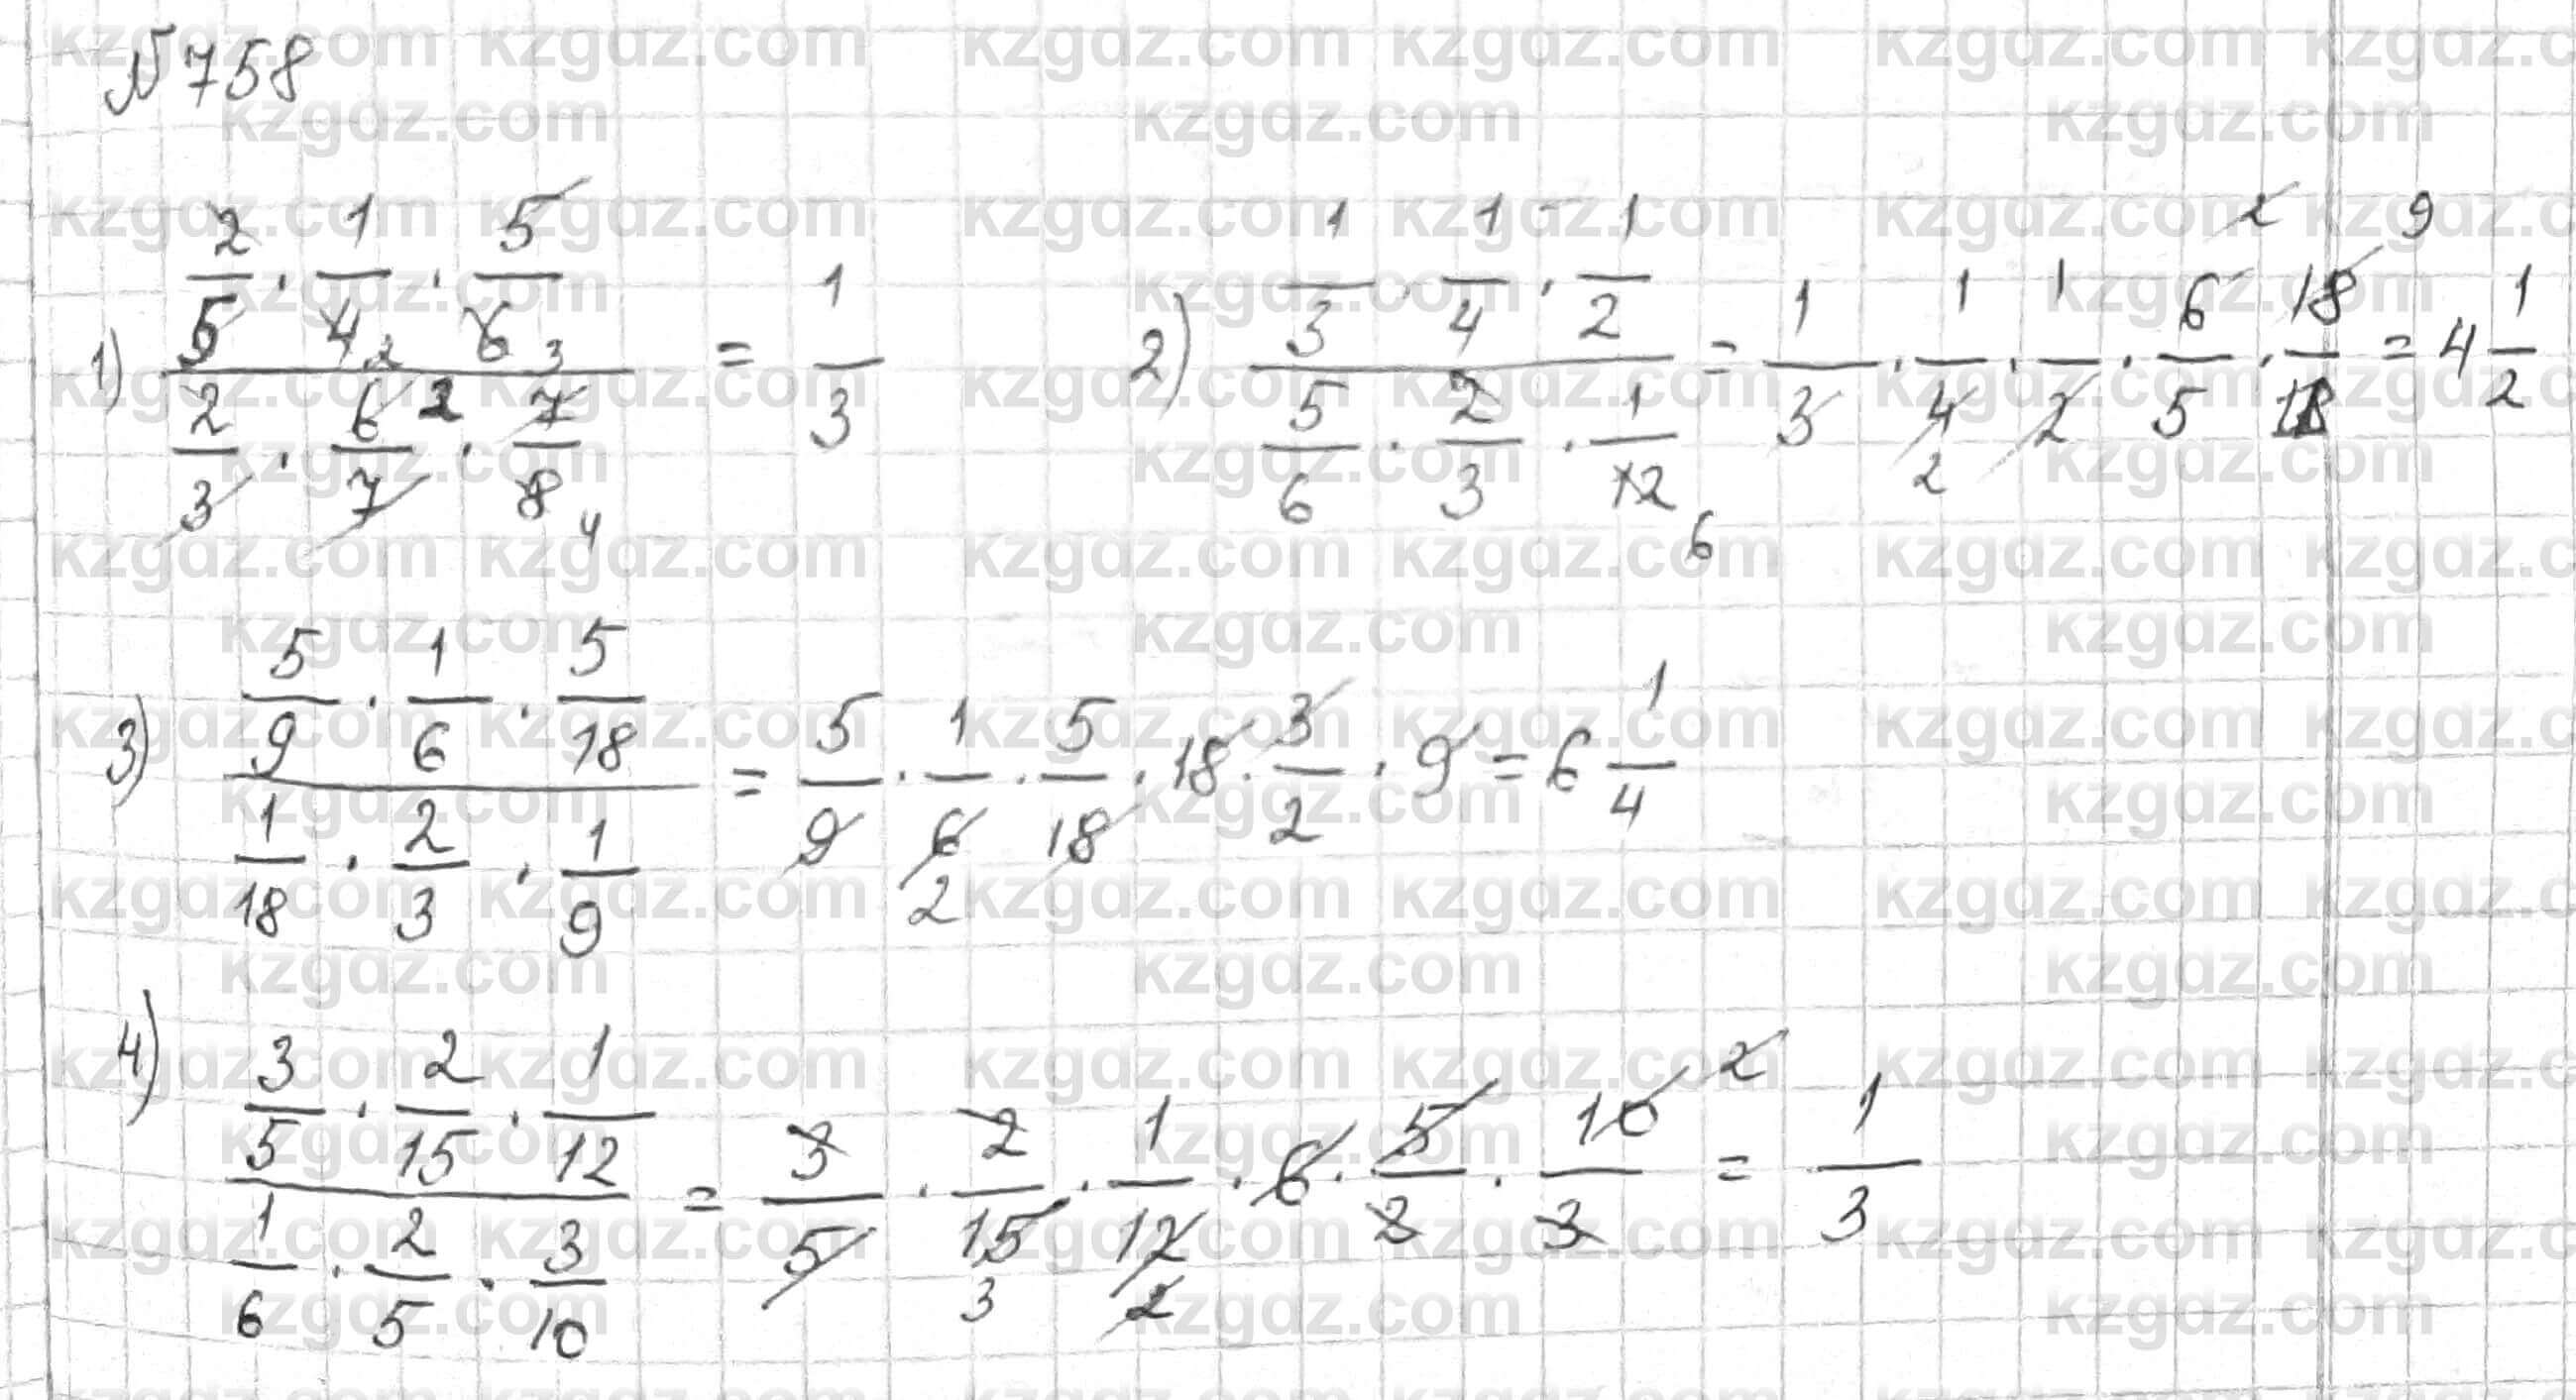 №758
1) (2/5 · 1/4 · 5/6) / (2/3 · 6/7 · 7/8) = 1/3
2) (1/3 · 1/4 · 1/2) / (5/6 · 2/3 · 1/12) = 1/3 · 1/4 · 1/2 · 6/5 · 18/1 = 4 1/2
3) (5/9 · 1/6 · 5/18) / (1/18 · 2/3 · 1/9) = 5/9 · 1/6 · 5/18 · 18 · 3/2 · 9 = 6 1/4
4) (3/5 · 2/15 · 1/12) / (1/6 · 2/5 · 3/10) = 3/5 · 2/15 · 1/12 · 6 · 5/2 · 10/3 = 1/3
kzgdz.com